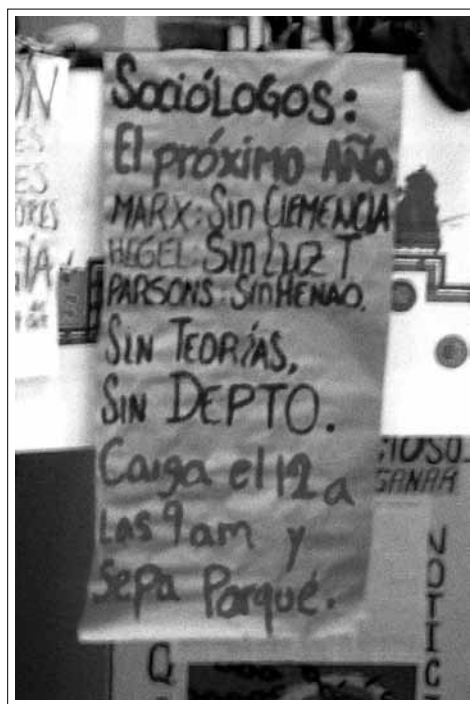 SOCIÓLOGOS:
El próximo AÑO
MARX: Sin CLEMENCIA
HEGEL: Sin LUZ T
PARSONS: Sin HENAO.
SIN TEORÍAS,
SIN DEPTO.
Caiga el 12 a
Las 9 am y
Sepa Porqué.
ÓN
ES
ES
ORES
GÍA
IOSO
GANAR
NOTIC
Q